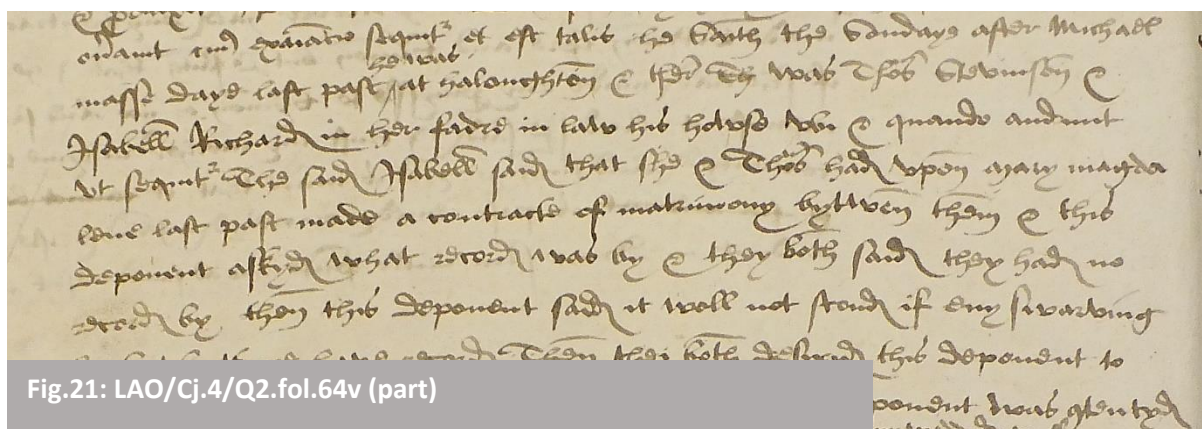 sequitr et est talis he Saith the Sondaye after Michael
he was
masse daye last past at haloughton & ther was Thos Stevinson &
Isabell Richard in her fadre in law his howse ubi & quando
ut sequitr The said Isabell said that she & Thos had upon mary magda
lene last past made a contracte of matrimony bytwen them & this
deponent askyd what record was by & they both said they had no
record by then this deponent sad it woll not stond if eny swarving
record Then thei both desired this deponent to
Fig.21: LAO/Cj.4/Q2.fol.64v (part)
ponent was